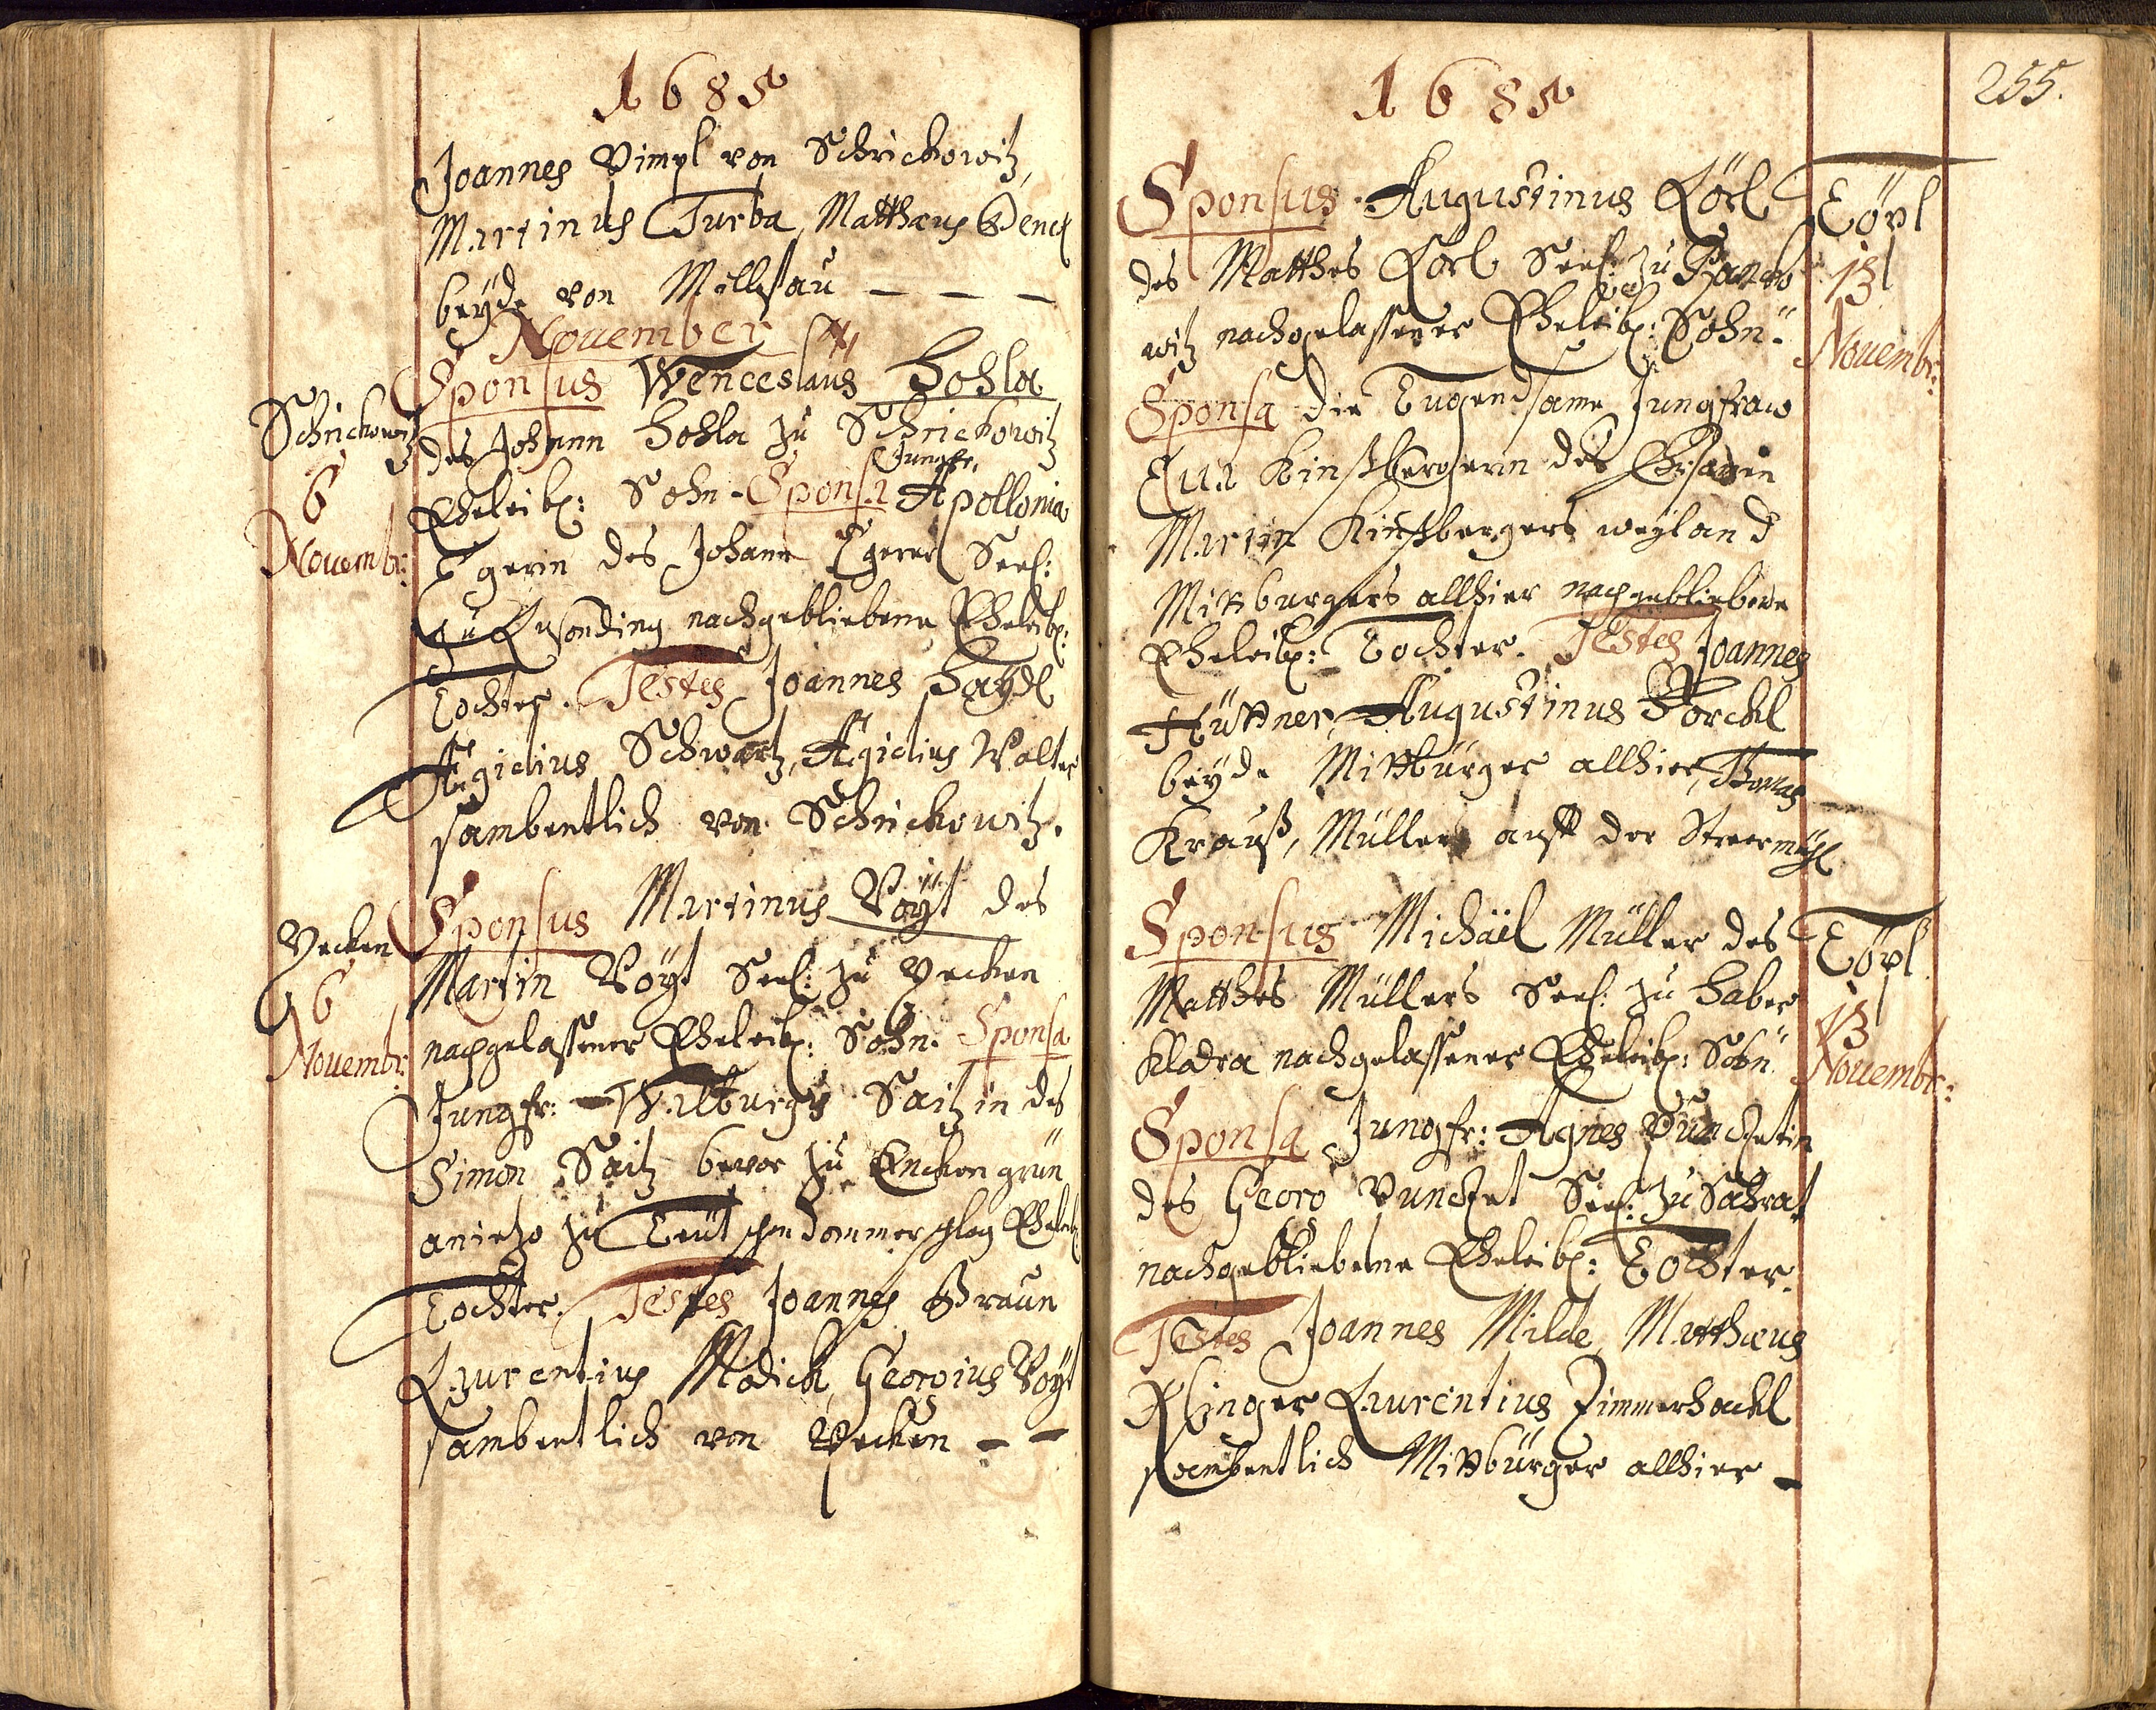 1685
Joannes Vimpl von Schrickowitz,
Martinus Turba, Matthæus Denck
beyde von Millesau — — —
November
Schrickowitz
6
Novembr:
Sponsus Wenceslaus Hohla
des Johann Hohla zu Schrickowitz
Jungfr.
Eheleibl: Sohn. Sponsa Apollonia
Egerin des Johann Egerer Seel:
zu nachgebliebene Eheleibl:
Tochter. Testes Joannes Haydl
Ægidius Schwartz, Ægidius Walter
sambentlich von Schrickowitz.
6
Novembr:
Sponsus Martinus Voyt des
Martin Voyt Seel: zu
nachgelassener Eheleibl: Sohn. Sponsa
Jungfr: Walburgis Saitzin des
Simon Saitz bevor zu Enckengrün
anietzo zu Teutschendommerschlag Eheleibl
Tochter. Testes Joannes Braun
Laurentius Modick, Georgius Voyt
sambentlich von — —
1685
255.
Töpl
13
Novembr:
Sponsus Augustinus Lörl
des Matthes Lörl Seel: zu
witz nachgelassener Eheleibl: Sohn.
Sponsa die Tugendsame Jungfraw
Eva Kinßbergerin des Ersamen
Martin Kinßbergers weyland
Mittburgers allhier nachgebliebene
Eheleibl: Tochter. Testes Joannes
Hüttner, Augustinus Borckl
beyde Mittbürger allhier, Thomas
Krauß, Müller auff der
Töpl
13
Novembr:
Sponsus Michäel Müller des
Matthes Müllers Seel: zu Haber
Kladra nachgelassener Eheleibl: Sohn
Sponsa Jungfr: Agnes Puncketin
des Georg Puncket Seel: zu Sahrat
nachgebliebene Eheleibl: Tochter.
Testes Joannes Milde, Matthæus
Klinger Laurentius Zimmerhackl
sambentlich Mittbürger allhier —